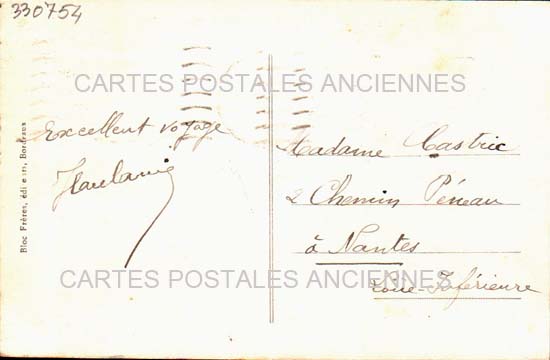 330754
CARTES POSTALES ANCIENNES
Excellent voyage
Bloc Frères, éditeurs, Bordeaux
Madame Castric
2 Chemin Péneau
à Nantes
Loire-Inférieure
CARTES POSTALES ANCIENNES